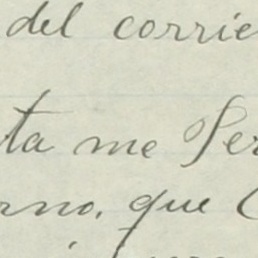 del corrie
ta me Ser
rno, que